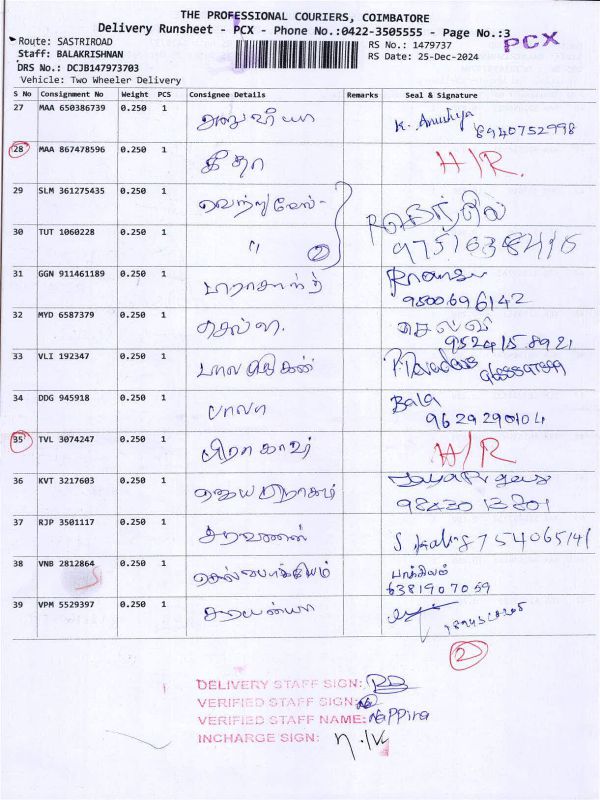 THE PROFESSIONAL COURIERS, COIMBATORE
Delivery Runsheet - PCX - Phone No.:0422-3505555 - Page No.:3
PCX
Route: SASTRIROAD
RS No.: 1479737
Staff: BALAKRISHNAN
RS Date: 25-Dec-2024
DRS No.: DCJB147973703
Vehicle: Two Wheeler Delivery
S No Consignment No Weight PCS Consignee Details Remarks Seal & Signature
27 MAA 650386739 0.250 1 அனுஷியா K. Anushya 8940752998
28 MAA 867478596 1 0.250 கீதா H/R.
29 SLM 361275435 0.250 1 வெற்றுவேல்
30 TUT 1060228 0.250 1 " 2 9751638416
31 GGN 911461189 0.250 1 9500696142
32 MYD 6587379 0.250 1 செல்வி 9524158921
33 VLI 192347 0.250 1 பாலமுருகன்
34 DDG 945918 0.250 1 பாலா Bala 9629290104
35 TVL 3074247 0.250 1 H/R
36 KVT 3217603 0.250 1 ஜெயபிரகாசம் 9843013801
37 RJP 3501117 0.250 1 சரவணன் 754065141
38 VNB 2812864 0.250 1 செல்பாக்கியம் பாக்கியம் 6381907059
39 VPM 5529397 0.250 1
2
DELIVERY STAFF SIGN:
VERIFIED STAFF SIGN:
VERIFIED STAFF NAME: Nappina
INCHARGE SIGN: